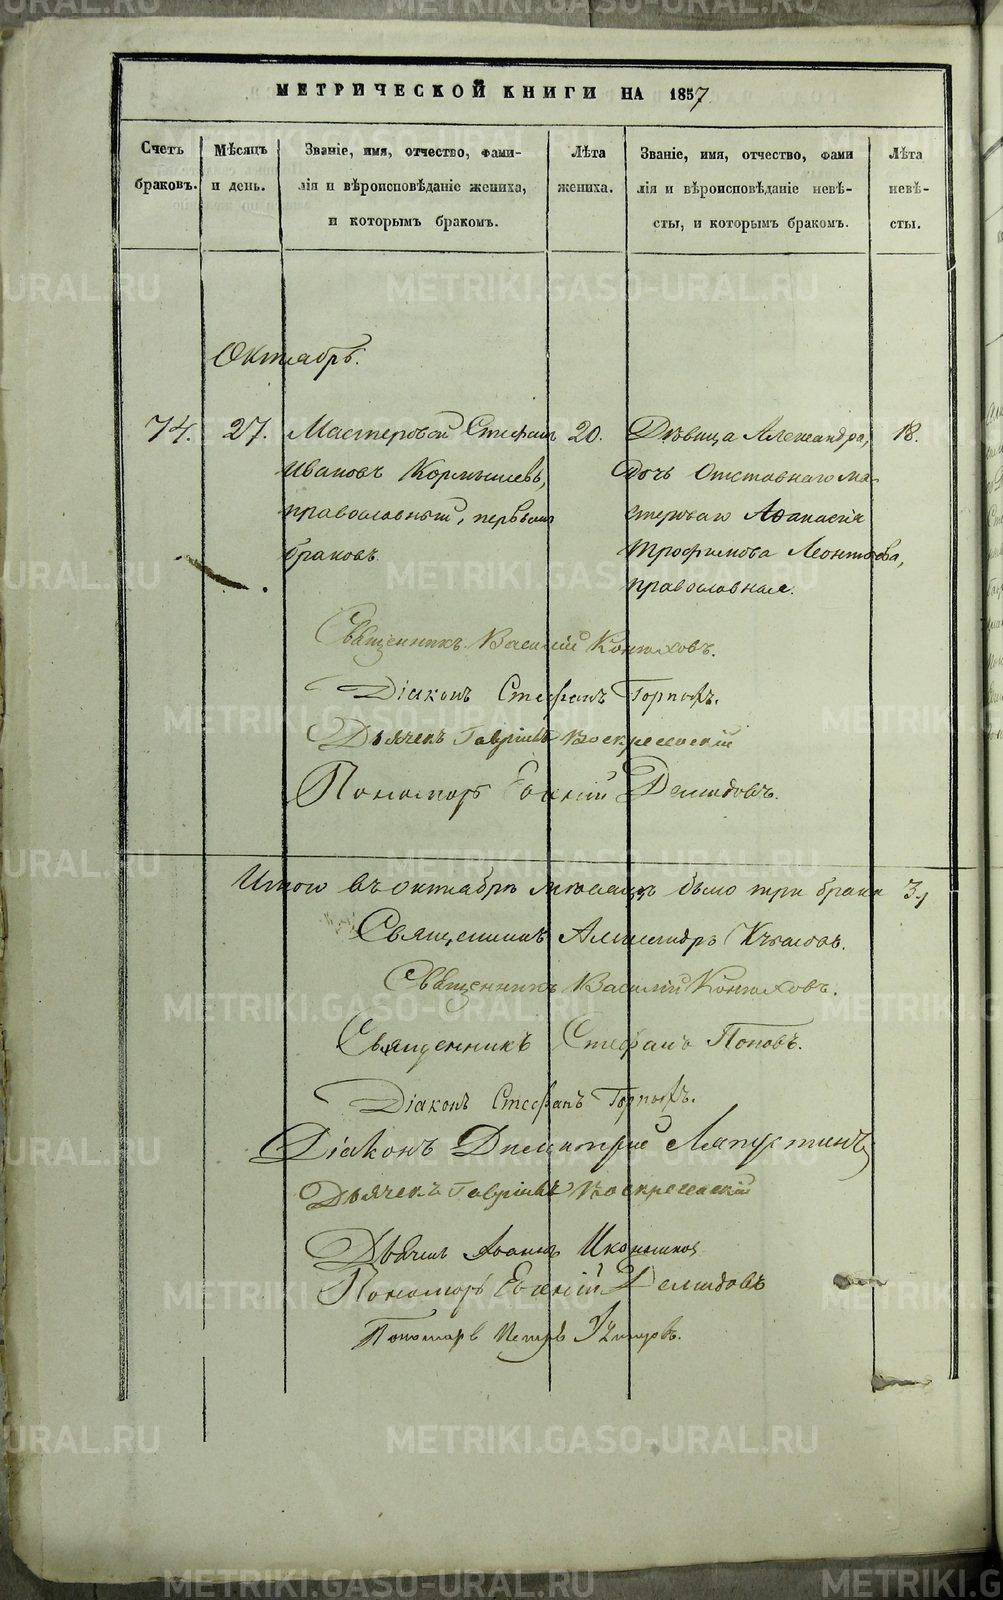 МЕТРИЧЕСКОЙ КНИГИ НА 1857
Счетъ браковъ.
Мѣсяцъ и день.
Званіе, имя, отчество, фами-
лія и вѣроисповѣданіе жениха,
и которымъ бракомъ.
Лѣта жениха.
Званіе, имя, отчество, фами
лія и вѣроисповѣданіе невѣ-
сты, и которымъ бракомъ.
Лѣта невѣ-
сты.
Октябрь.
74.
27.
Мастеровой Стефанъ
Ивановъ Кормышевъ,
православный, первымъ
бракомъ
20.
Дѣвица Александра,
дочь Отставнаго ма-
стероваго Афанасія
Трофимова Леонтьева,
православная.
18.
Священникъ Василій Конюховъ.
Діаконъ Стефанъ
Дьячекъ Гавріилъ Воскресенскій
Пономарь Евгеній Демидовъ.
Итого въ октябрѣ мѣсяцѣ было три брака 3.
Священникъ Александръ
Священникъ Василій Конюховъ.
Священникъ Стефанъ Поповъ.
Діаконъ Стефанъ
Діаконъ Димитрій Ляпустинъ
Дьячекъ Гавріилъ Воскресенскій
Дьячекъ Иконниковъ
Пономарь Евгеній Демидовъ
Пономарь Петръ
METRIKI.GASO-URAL.RU